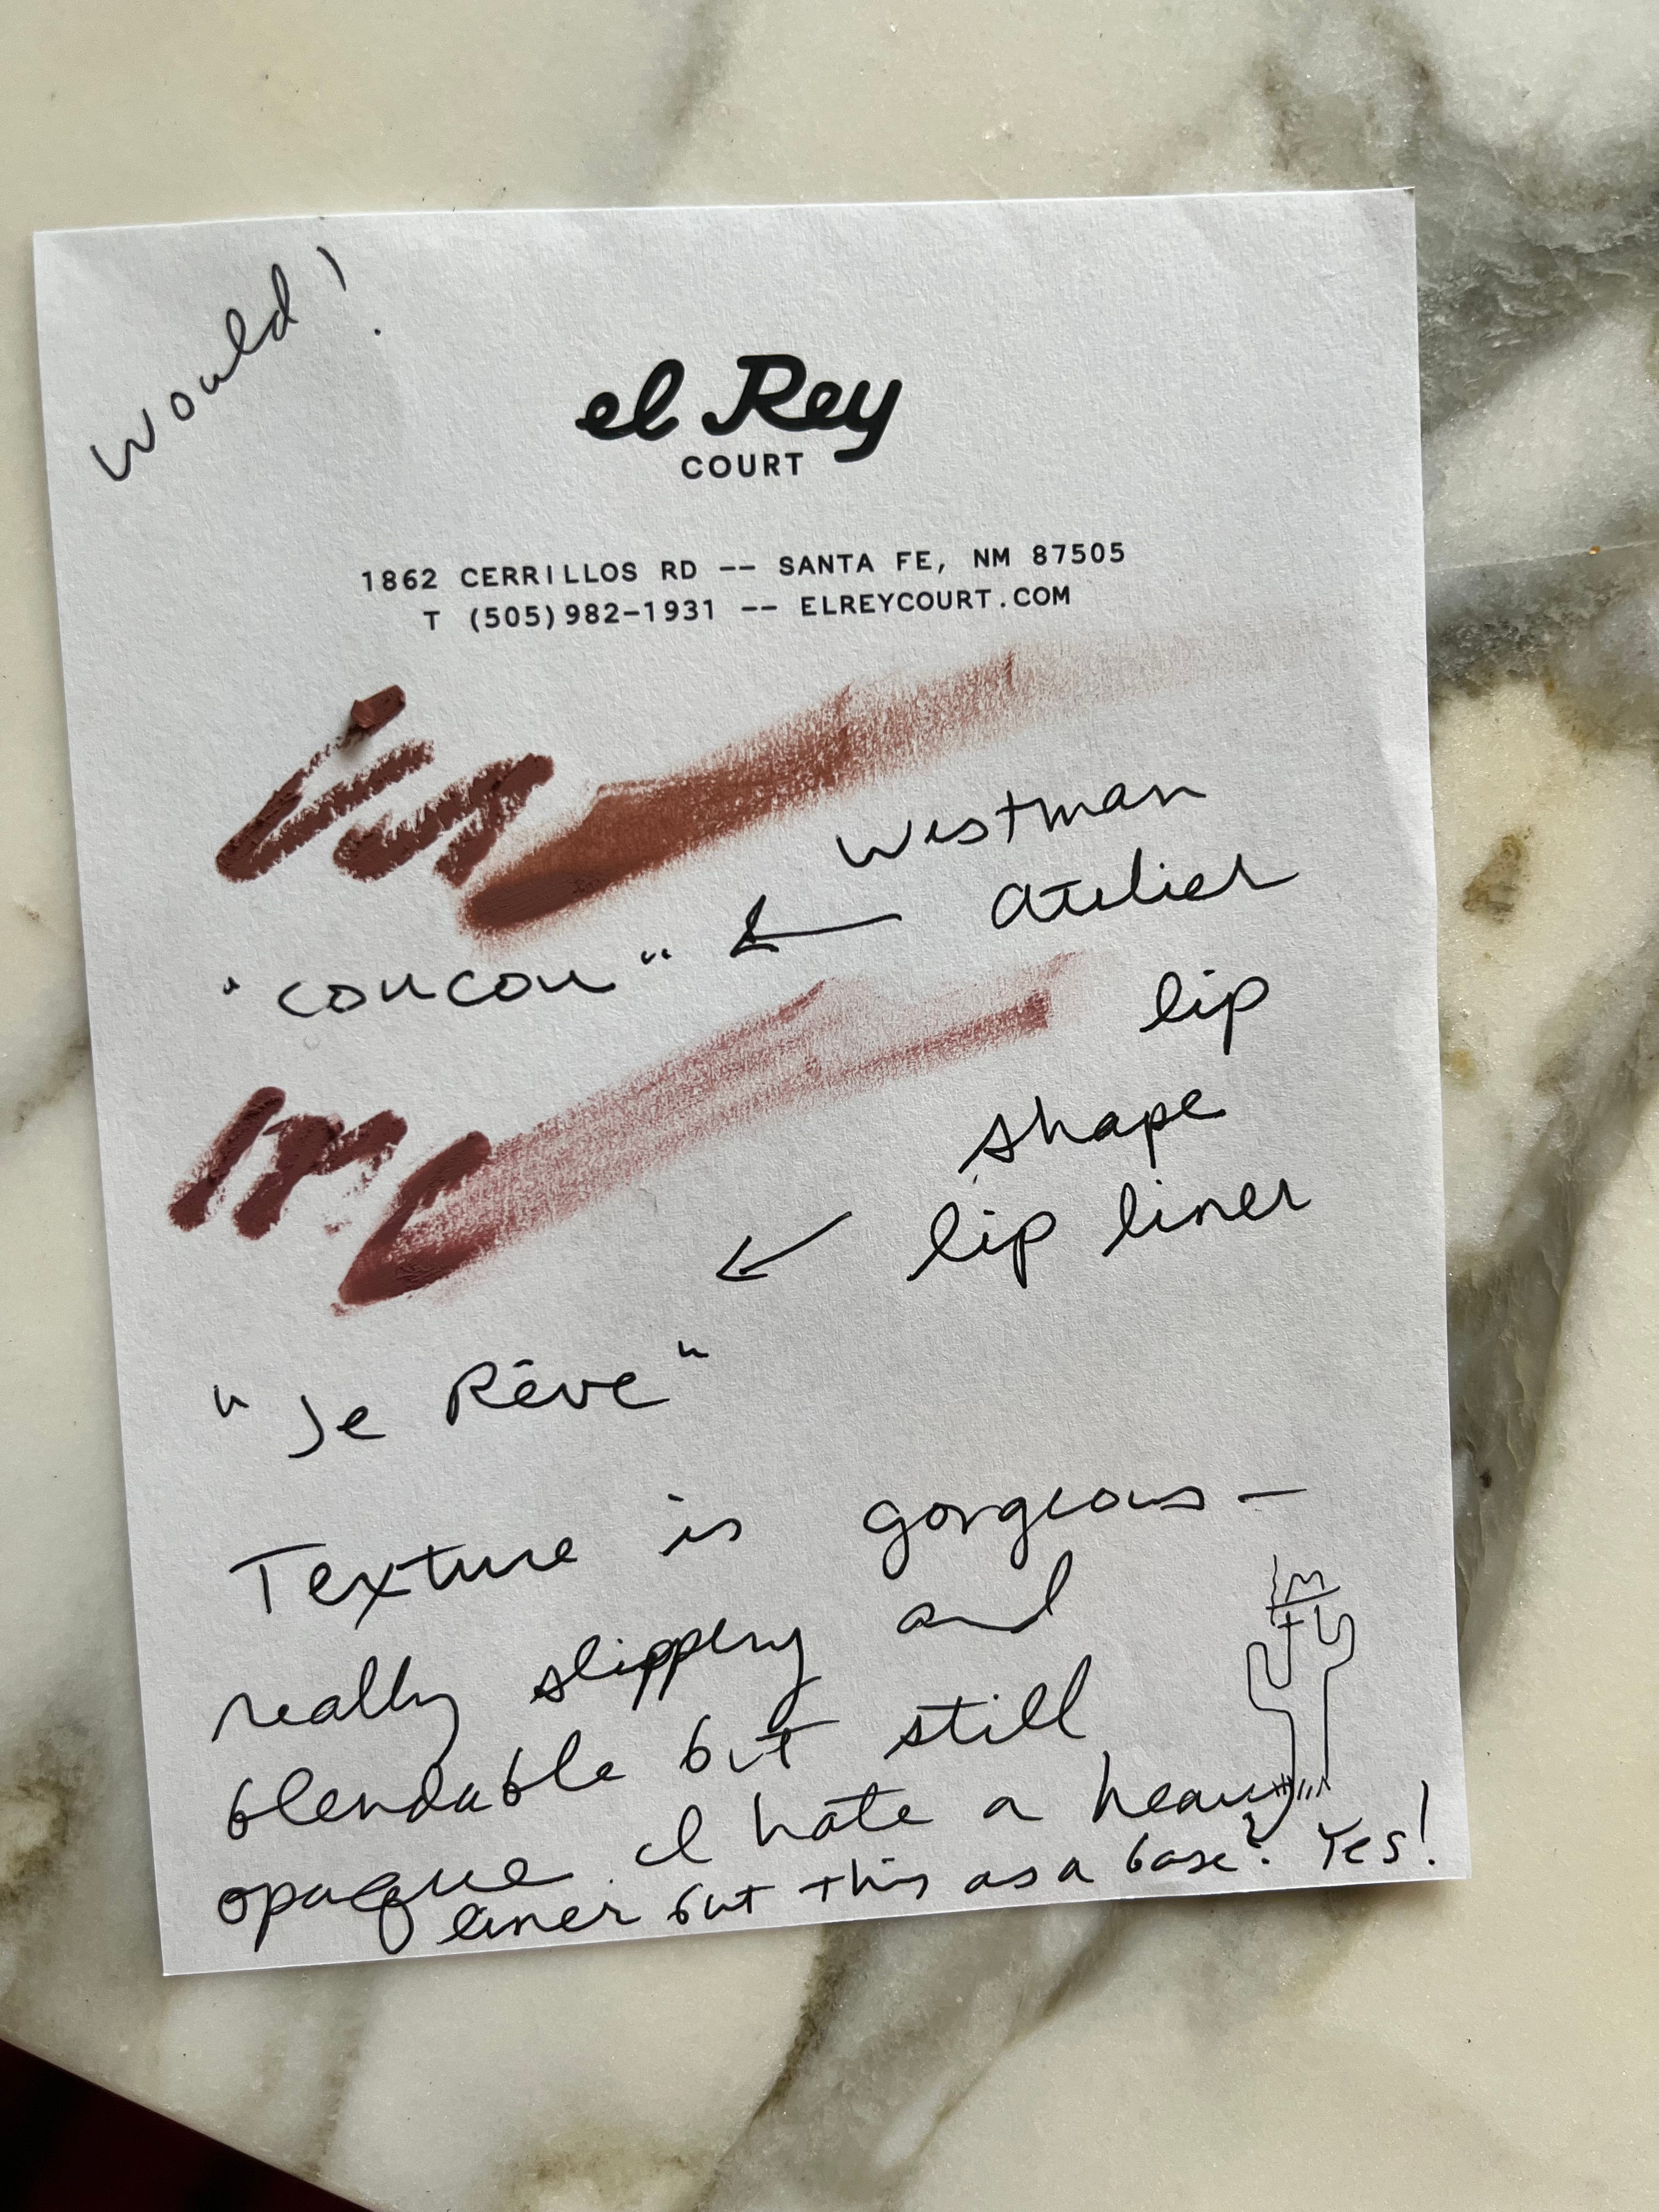 Would!
el Rey
COURT
1862 CERRILLOS RD -- SANTA FE, NM 87505
T (505)982-1931 -- ELREYCOURT.COM
Westman
Atelier
"coucou"
lip
shape
lip liner
"Je Rêve"
Texture is gorgeous —
really slippery and
blendable but still
opaque. I hate a heavy
liner but this as a base? Yes!